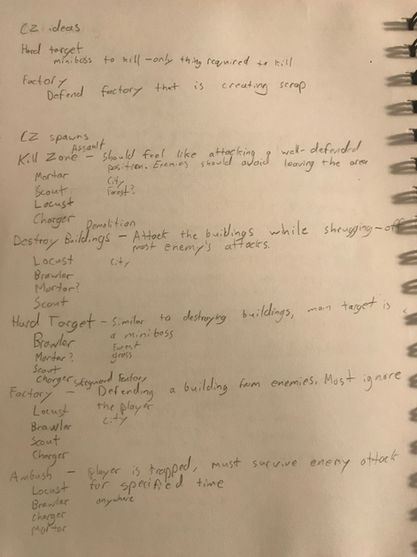 CZ ideas
Hard target
miniboss to kill - only thing required to kill
Factory
Defend factory that is creating scrap
CZ spawns
Assault
Kill Zone - Should feel like attacking a well-defended
position. Enemies should avoid leaving the area
Mortar City
Scout Forest?
Locust
Charger
Demolition
Destroy Buildings - Attack the buildings while shrugging-off
most enemy's attacks.
Locust City
Brawler
Mortar?
Scout
Hard Target - Similar to destroying buildings, main target is
a miniboss
Brawler Forest
Mortar? grass
Scout
Charger
Safeguard Factory
Factory - Defending a building from enemies. Most ignore
the player
Locust City
Brawler
Scout
Charger
Ambush - Player is trapped, must survive enemy attack
for specified time
Locust
Brawler anywhere
Charger
Mortar